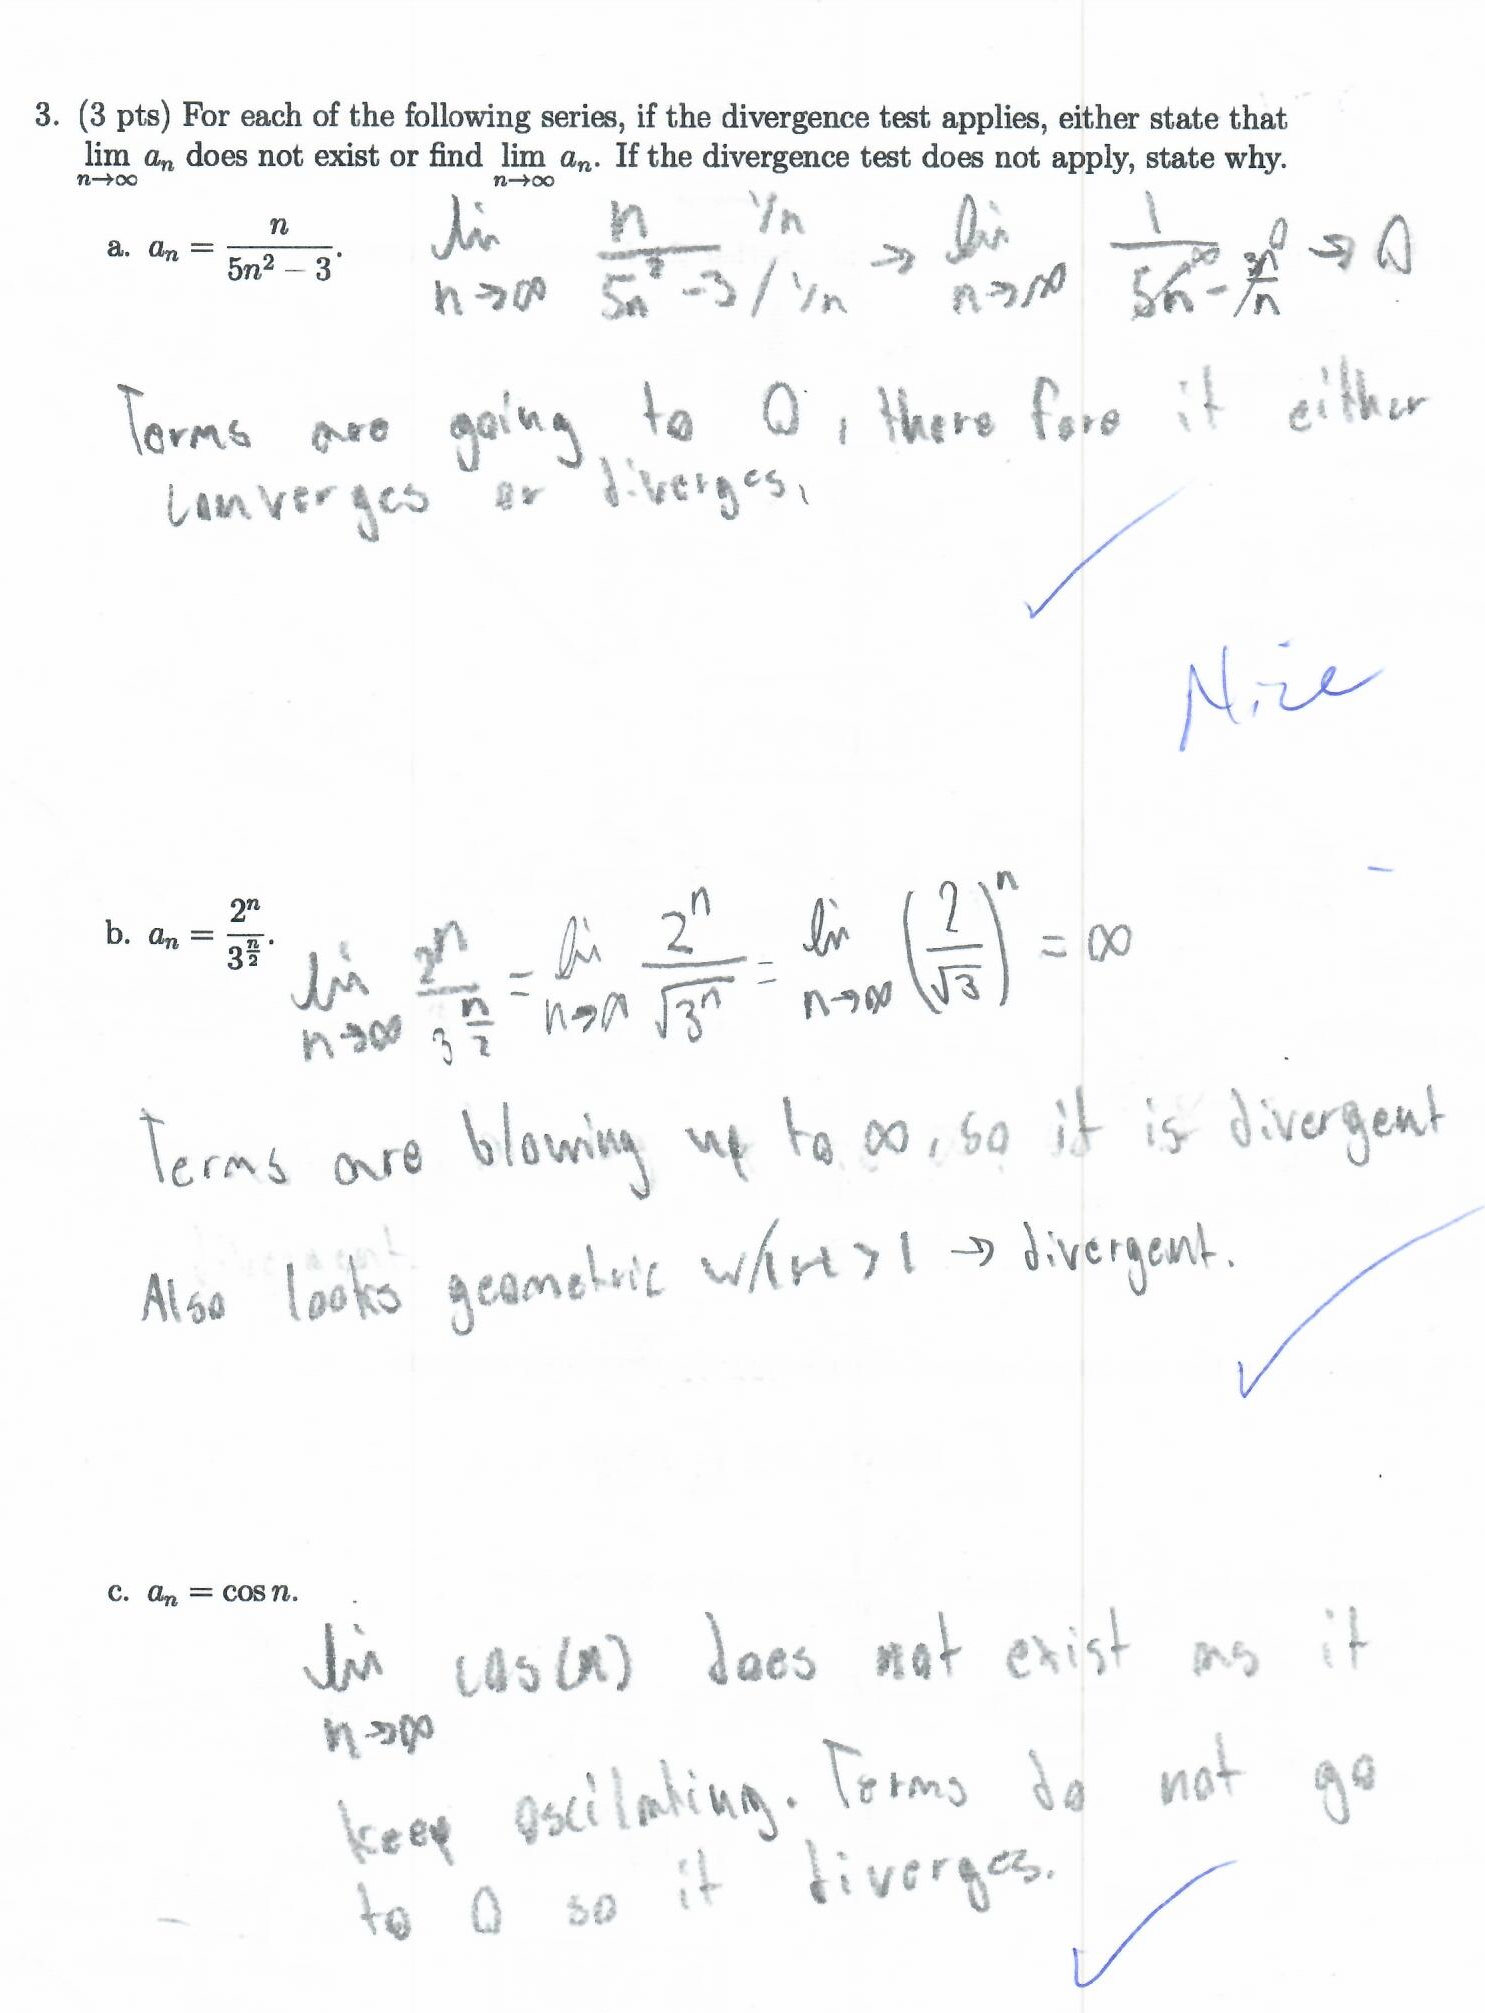 3. (3 pts) For each of the following series, if the divergence test applies, either state that
lim n→∞ aₙ does not exist or find lim n→∞ aₙ. If the divergence test does not apply, state why.
a. aₙ = n / (5n² − 3).
lim n→∞ n / (5n² − 3) 1/n / 1/n → lim n→∞ 1 / (5n − 3/n) → 0
Terms are going to 0, there fore it either
converges or diverges.
Nice
b. aₙ = 2ⁿ / 3^(n/2).
lim n→∞ 2ⁿ / 3^(n/2) = lim n→∞ 2ⁿ / √3ⁿ = lim n→∞ (2/√3)ⁿ = ∞
Terms are blowing up to ∞, so it is divergent
Also looks geometric w/ |r| > 1 → divergent.
c. aₙ = cos n.
lim n→∞ cos(n) does not exist as it
keep oscilating. Terms do not go
to 0 so it diverges.